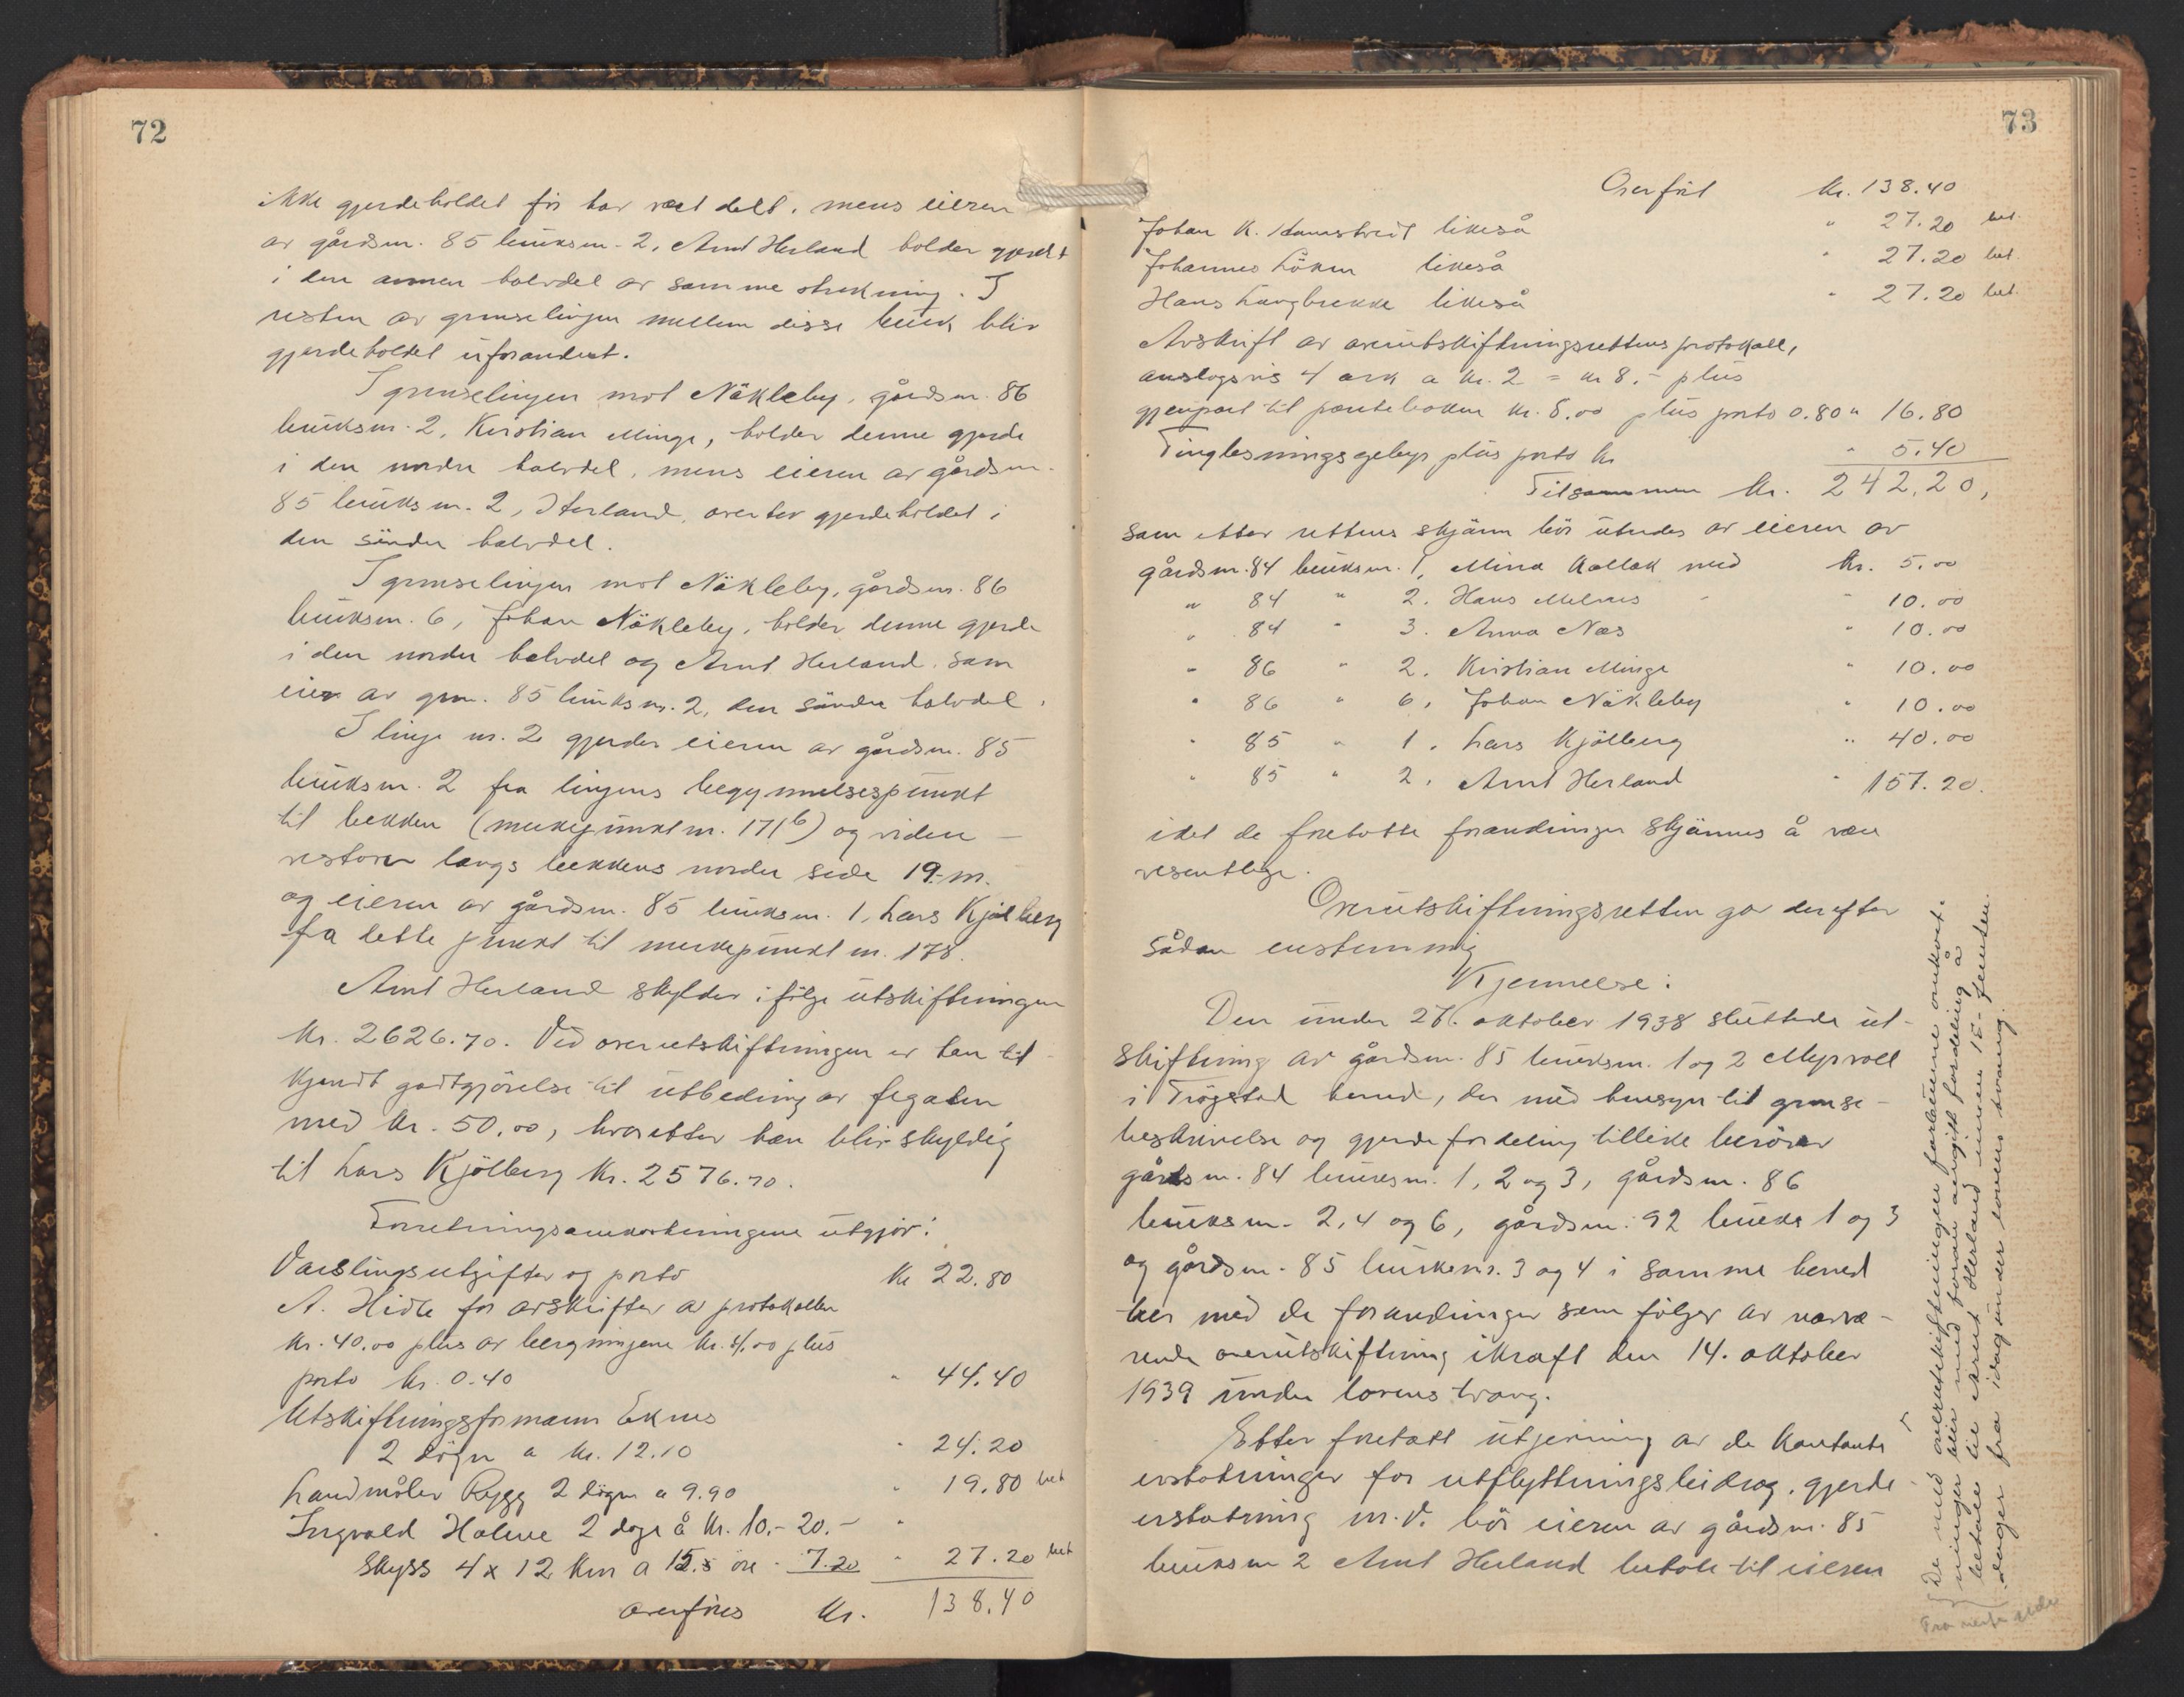 72
ikke gjerdeholdet før har vært delt, mens eieren
av gårdsnr. 85 bruksnr. 2, Arnt Herland holder gjerdet
i den annen halvdel av samme strekning. I
resten av grenselinjen mellem disse bruk blir
gjerdeholdet uforandret.
I grenselinjen mot Näkleby, gårdsnr. 86
bruksnr. 2, Kristian Minge, holder denne gjerde
i den nordre halvdel, mens eieren av gårdsnr.
85 bruksnr. 2, Herland, overtar gjerdeholdet i
den søndre halvdel.
I grenselinjen mot Näkleby, gårdsnr. 86
bruksnr. 6, Johan Näkleby, holder denne gjerde
i den nordre halvdel og Arnt Herland, som
eier av gnr. 85 bruksnr. 2, den søndre halvdel.
I linje nr. 2 gjerder eieren av gårdsnr. 85
bruksnr. 2 fra linjens begynnelsespunkt
til bekken (merkepunkt nr. 171⁶) og videre
vestover langs bekkens nordre side 19.- m.
og eieren av gårdsnr. 85 bruksnr. 1, Lars Kjølberg
fra dette punkt til merkepunkt nr. 178.
Arnt Herland skylder ifølge utskiftningen
kr. 2626.70. Ved overutskiftningen er han til-
kjendt godtgjørelse til utbedring av fegaten
med kr. 50.00, hvoretter han blir skyldig
til Lars Kjølberg kr. 2576.70.
Forretningsomkostningene utgjør:
Varslingsutgifter og porto kr 22.80
A. Hidle for avskrifter av protokollen
kr. 40.00 plus av beregningene kr. 4.00 plus
porto kr. 0.40 " 44.40
Utskiftningsformann Eknes
2 døgn a kr. 12.10 " 24.20
Landmåler Rygg 2 døgn a 9.90 " 19.80 bet
Ingvald Holme 2 dage à kr. 10.- 20.- "
Skyss 4 x 12 km a 15.5 øre - 7.20 " 27.20 bet
overføres kr. 138.40
73
Overført kr. 138.40
Johan K. Hamstvedt likeså " 27.20 bet.
Johannes Løken likeså " 27.20 bet.
Hans Langbrekke likeså " 27.20 bet.
Avskrift av overutskiftningsrettens protokoll,
anslagsvis 4 ark a kr. 2 = kr 8.- plus
gjenpart til panteboken kr. 8.00 plus porto 0.80 " 16.80
Tinglesningsgebyr plus porto kr " 5.40
Tilsammen kr. 242.20,
som etter rettens skjønn bør utredes av eieren av
gårdsnr. 84 bruksnr. 1, Mina Kallak med kr. 5.00
" 84 " 2. Hans Melnes - " 10.00
" 84 " 3. Anna Næs " 10.00
" 86 " 2. Kristian Minge " 10.00
" 86 " 6, Johan Näkleby " 10.00
" 85 " 1. Lars Kjølberg " 40.00
" 85 " 2. Arnt Herland " 157.20.
idet de foretatte forandringer skjønnes å være
vesentlige.
Overutskiftningsretten gav derefter
sådan enstemmig
Kjennelse:
Den under 27. oktober 1938 sluttede ut-
skiftning av gårdsnr. 85 bruksnr. 1 og 2 Myrvoll
i Trøgstad herred, der med hensyn til grense-
beskrivelse og gjerdefordeling tillike berører
gårdsnr. 84 bruksnr. 1, 2 og 3, gårdsnr. 86
bruksnr. 2, 4 og 6, gårdsnr. 92 bruksnr 1 og 3
og gårdsnr. 85 bruksnr. 3 og 4 i samme herred
trer med de forandringer som følger av nærvæ-
rende overutskiftning ikraft den 14. oktober
1939 under lovens tvang.
Etter foretatt utjevning av de kontante
erstatninger for utflytningsbidrag, gjerde-
erstatning m.v. bør eieren av gårdsnr. 85
bruksnr 2 Arnt Herland betale til eieren
De med overutskiftningen forbundne omkost-
ninger blir med foran angitt fordeling å
betale til Arnt Herland innen 15 - femten
dager fra idag under lovens tvang.
Fra neste side